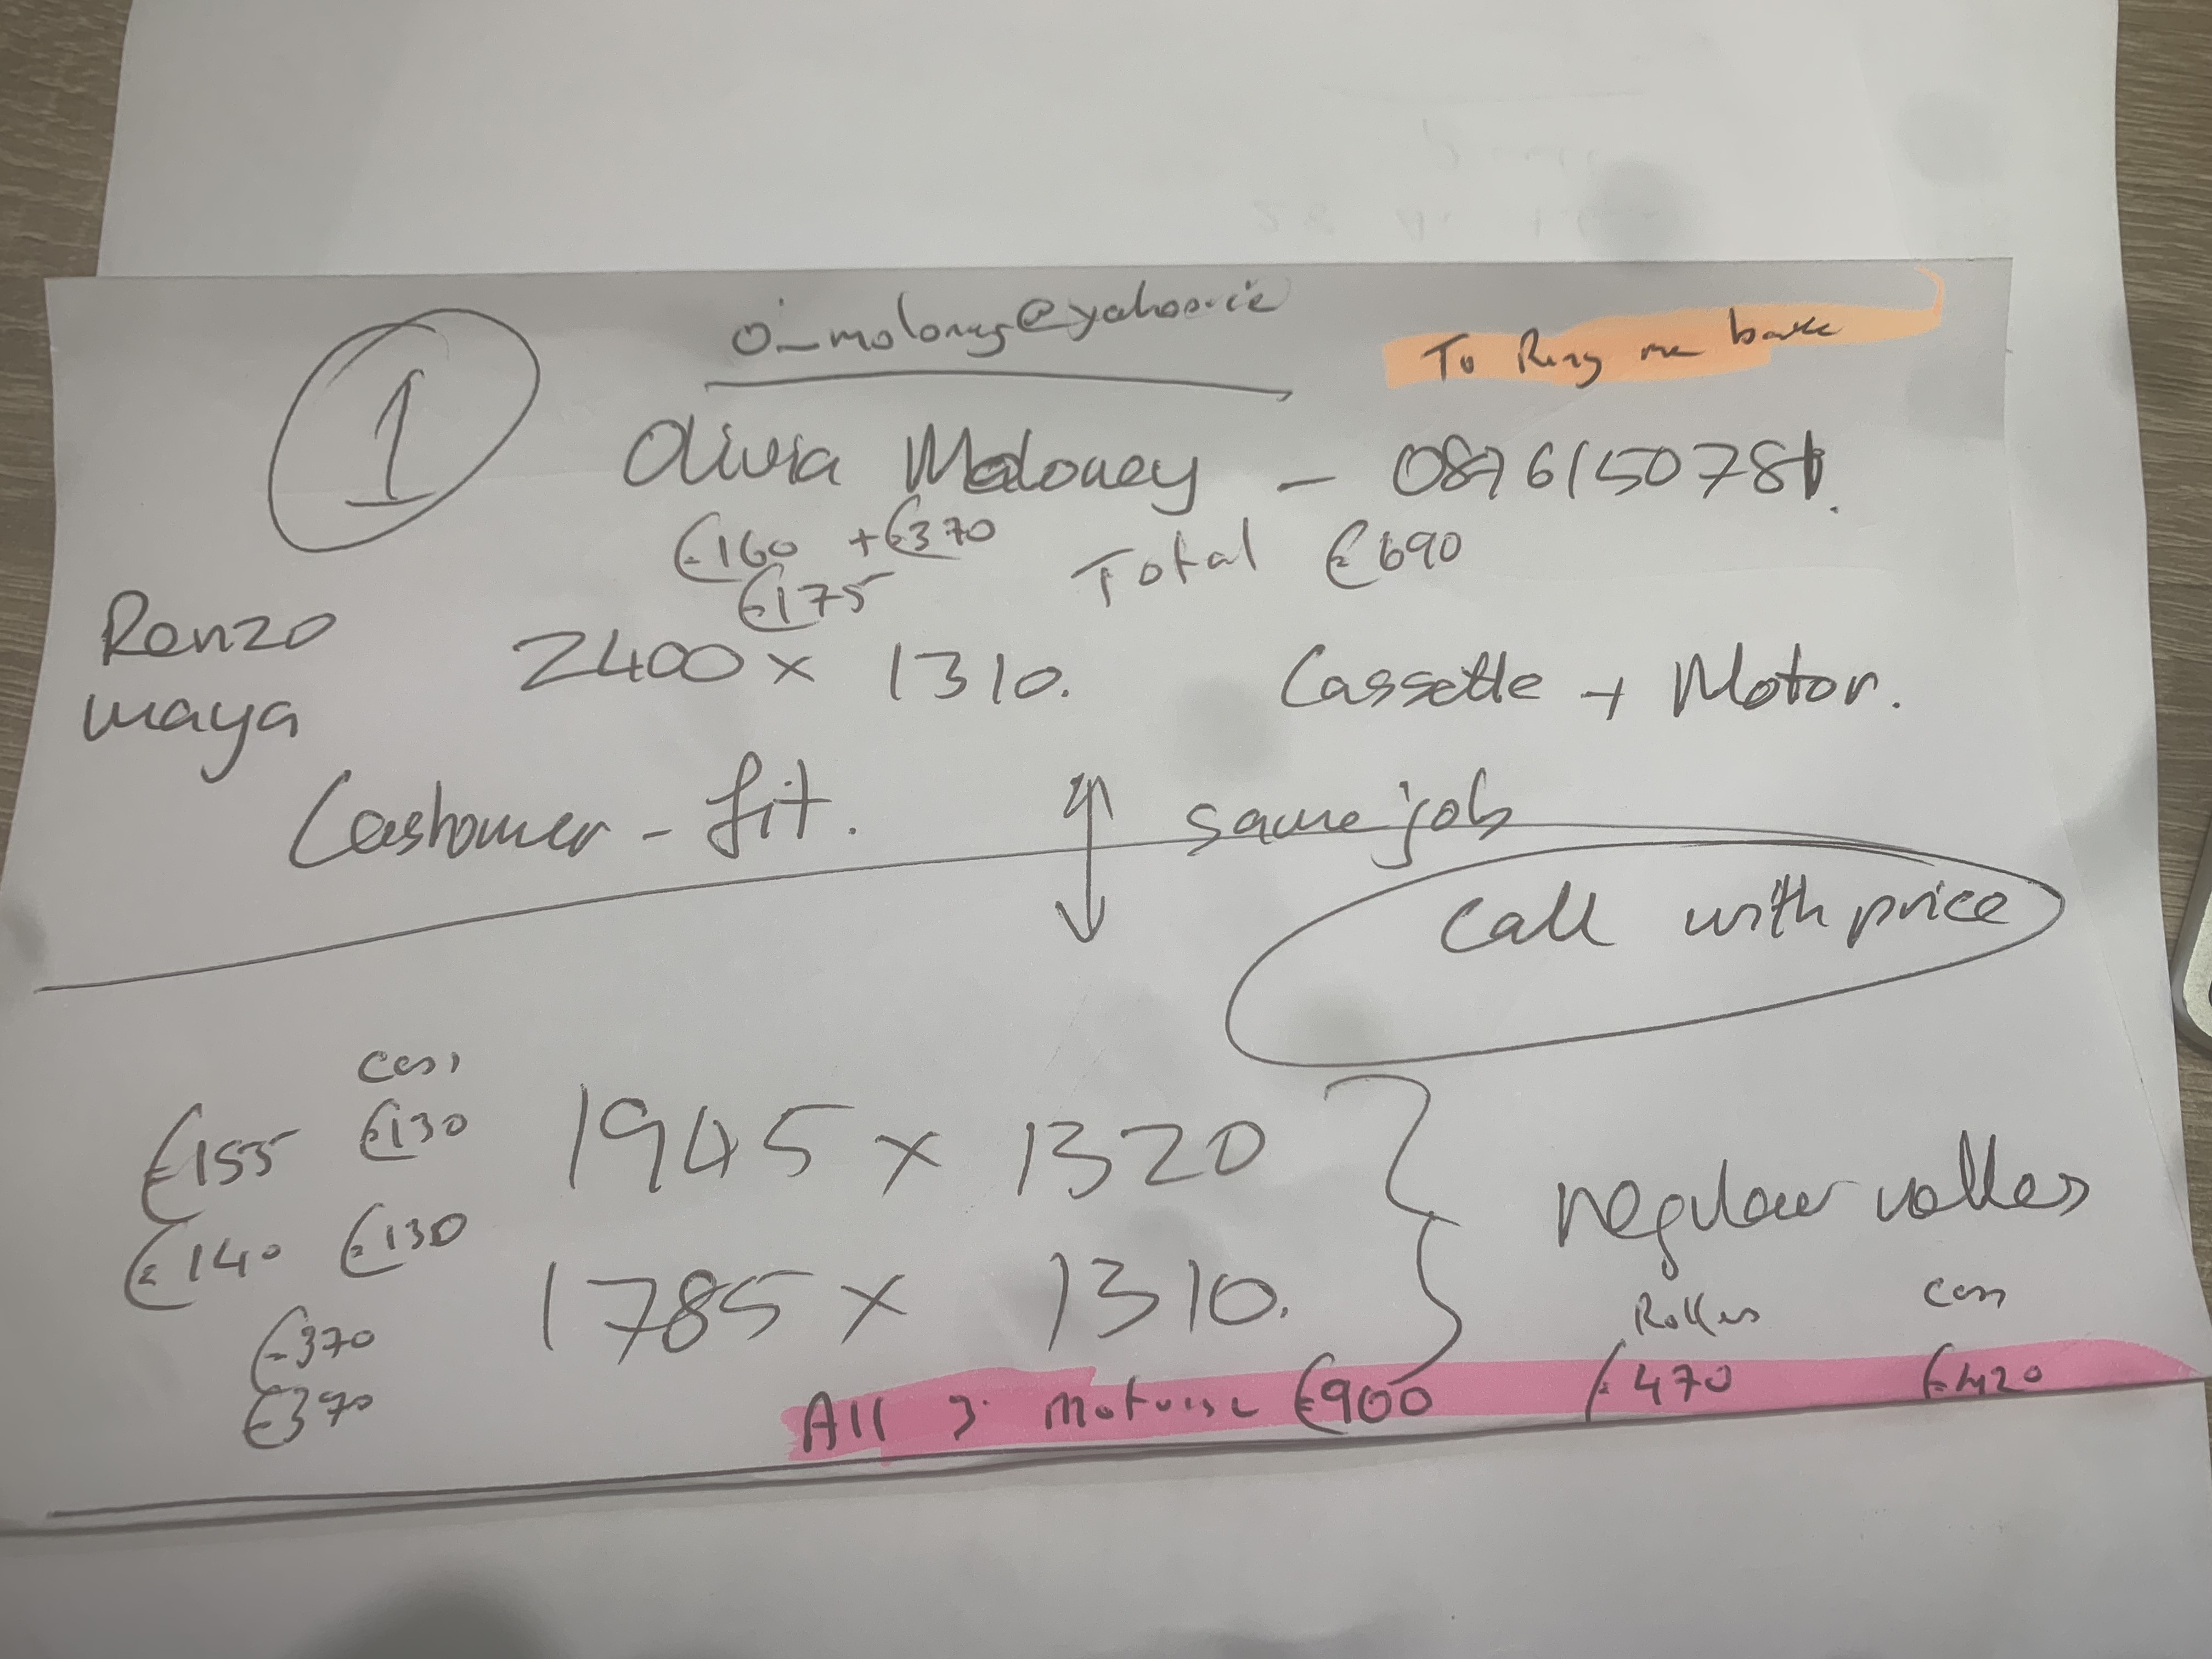 1
o_moloney@yahoo.ie
To Ring me back
Olivia Moloney - 0876150781.
€160 + €370
€175
Total €690
Renzo
Maya
2400 x 1310.
Cassette + Motor.
Customer - fit.
same job
Call with price
cass
€155 €130 1945 x 1320
€140 €130
1785 x 1310.
regular rollers
€370
€370
Rollers cass
All 3 Motorise €900 €470 €420